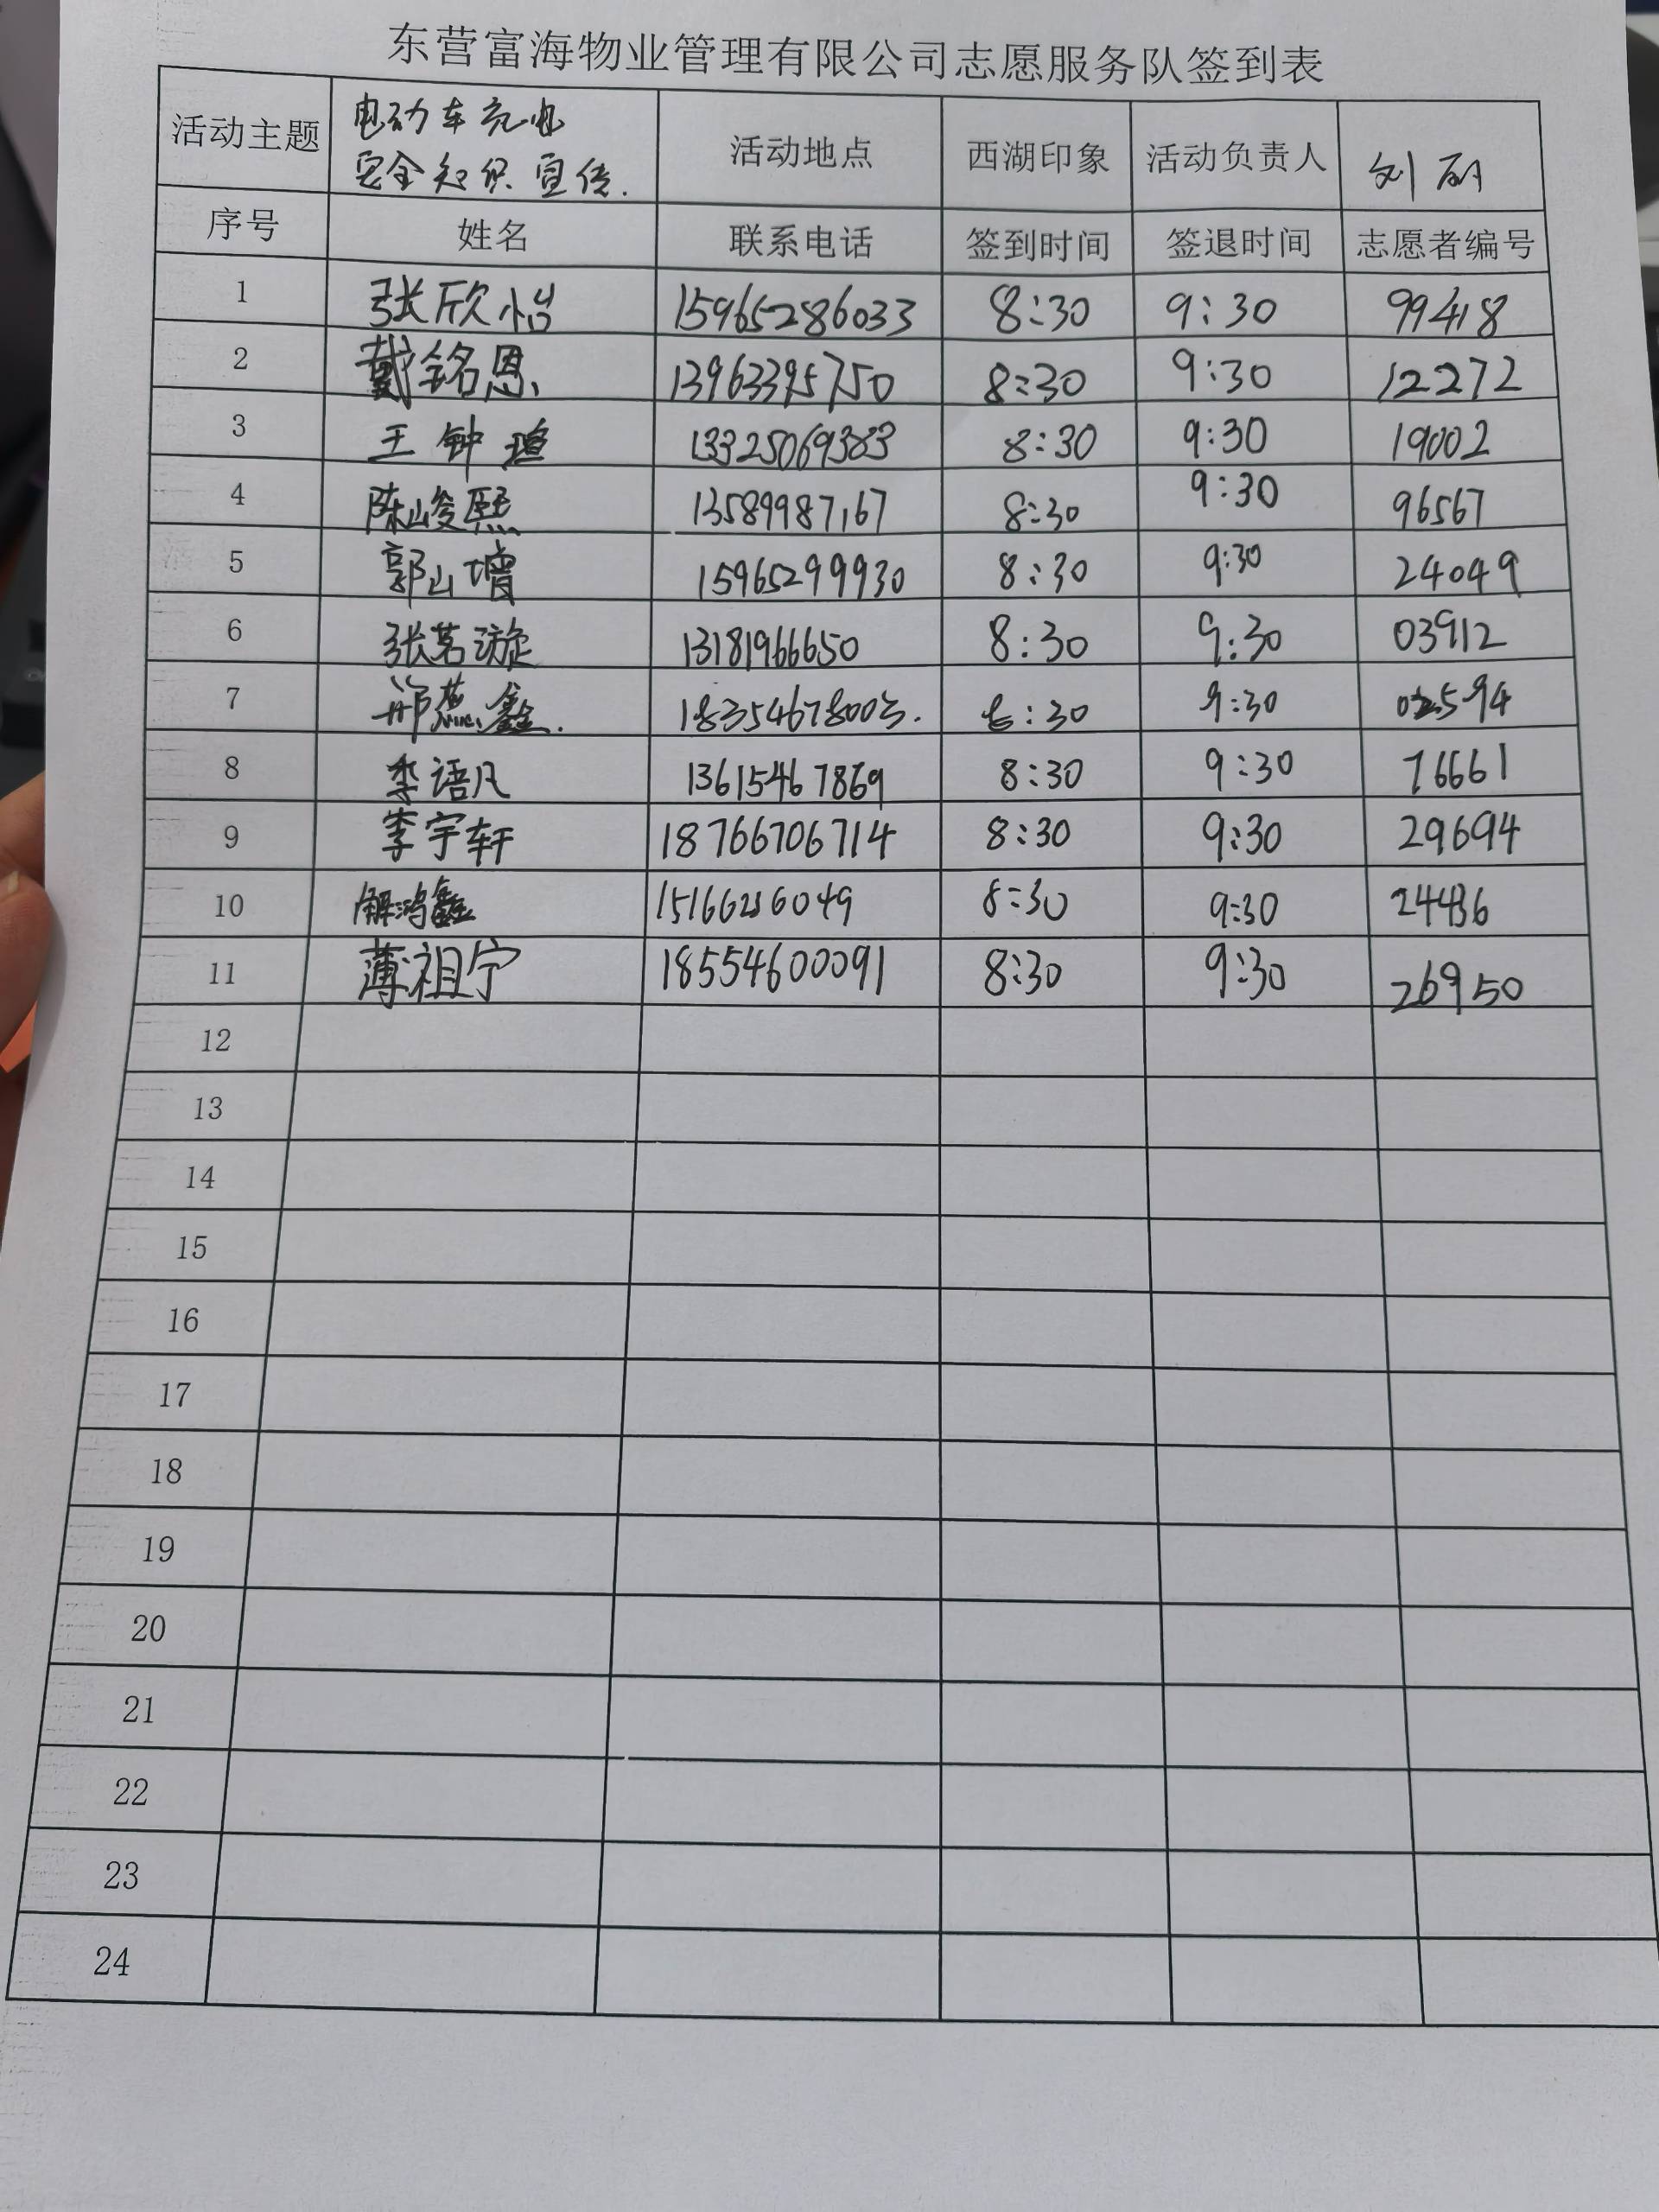 东营富海物业管理有限公司志愿服务队签到表
活动主题 电动车充电 安全知识宣传. 活动地点 西湖印象 活动负责人 刘
序号 姓名 联系电话 签到时间 签退时间 志愿者编号
1 张欣怡 15965286033 8:30 9:30 99418
2 戴铭恩 13963395750 8:30 9:30 12272
3 王钟瑄 13325069383 8:30 9:30 19002
4 陈峻熙 13589987167 8:30 9:30 96567
5 郭山增 15965299930 8:30 9:30 24049
6 张茗漩 13181966650 8:30 9:30 03912
7 鑫. 8:30 9:30
8 李语凡 13615467869 8:30 9:30 76661
9 李宇轩 18766706714 8:30 9:30 29694
10 解鸿鑫 8:30 9:30
11 薄祖宁 18554600091 8:30 9:30 26950
12
13
14
15
16
17
18
19
20
21
22
23
24